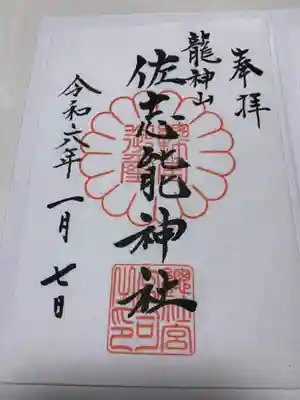 奉拝
龍神山
佐志能神社
令和六年
一月
七日